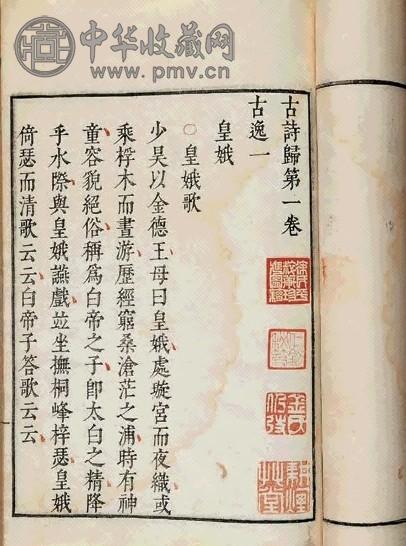 中华收藏网
www.pmv.cn
古詩歸第一卷
古逸一
皇娥
皇娥歌
少昊以金德王母曰皇娥處璇宮而夜織或
乘桴木而晝游歷經窮桑滄茫之浦時有神
童容貌絕俗稱爲白帝之子卽太白之精降
乎水際與皇娥讌戲並坐撫桐峰梓瑟皇娥
倚瑟而清歌云云白帝子答歌云云